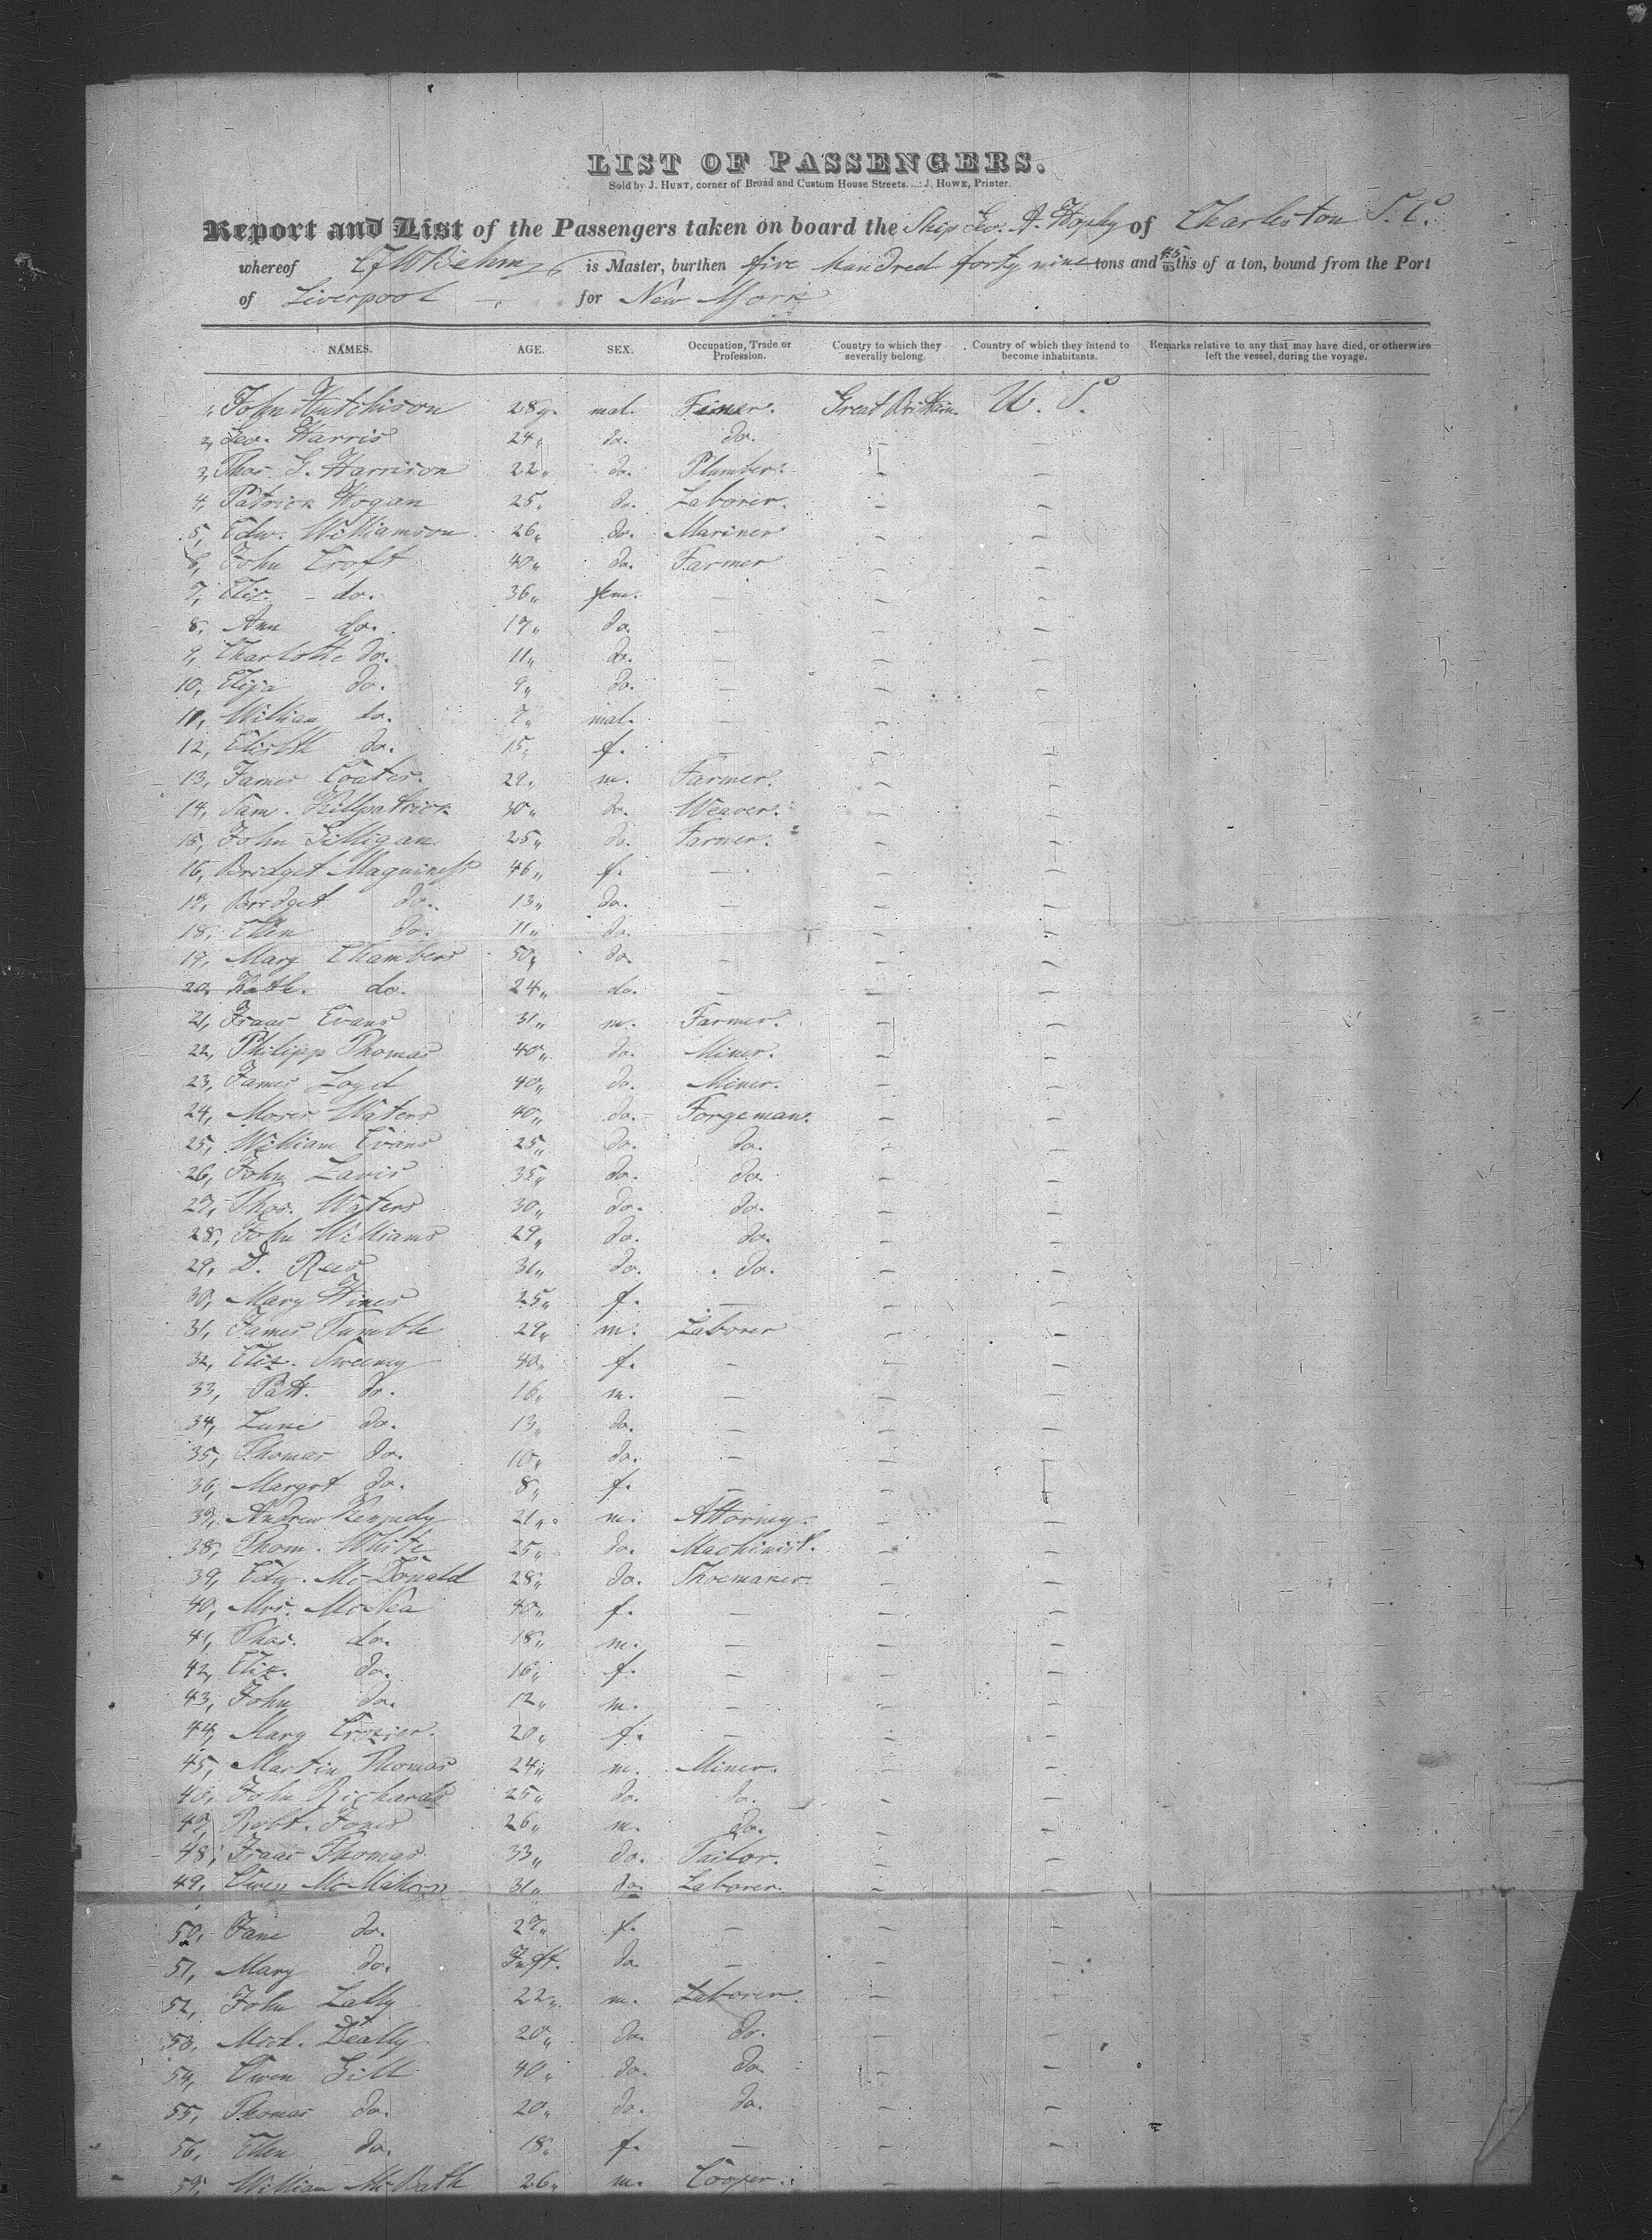 LIST OF PASSENGERS.
Sold by J. HUNT, corner of Broad and Custom House Streets....J. HOWE, Printer.
Report and List of the Passengers taken on board the Ship Geo. A. Hopley of Charleston S. C.
whereof is Master, burthen five hundred forty nine tons and /95ths of a ton, bound from the Port
of Liverpool for New York
NAMES. AGE. SEX. Occupation, Trade or Profession. Country to which they severally belong. Country of which they intend to become inhabitants. Remarks relative to any that may have died, or otherwise left the vessel, during the voyage.
1, John Hutchison 28 y. mal. Great Brittain. U. S.
2, Geo. Harris 24 " do. do. — —
3, Thos. G. Harrison 22 " do. Plumber. — —
4, Patrick Hogan 25 " do. Laborer. — —
5, Edw. Williamson 26 " do. Mariner — —
6, John Croft 40 " do. Farmer — —
7, Eliz. - do. 36 " fem. — — —
8, Ann do. 17 " do. — — —
9, Charlotte do. 11 " do. — — —
10, Eliza do. 9 " do. — — —
11, William do. 7 " mal. — — —
12, Elisbth do. 15 " f. — — —
13, James Coates. 29 " m. Farmer. — —
14, Sam. Killpatrick 30 " do. Weaver. — —
15, John Gilligan 25 " do. Farmer. — —
16, Bridget Maguiness 46 " f. — — —
17, Bridget do. 13 " do. — — —
18, Ellen do. 11 " do. — — —
19, Mary Chambers 50 " do. — — —
20, Kath. do. 24 " do. — — —
21, Isaac Evans 31 " m. Farmer. — —
22, Philipp Thomas 40 " do. Miner. — —
23, James Loyd 40 " do. Miner. — —
24, Moses Waters 40 " do. Forgeman. — —
25, William Evans 25 " do. do. — —
26, John Lavis 35 " do. do. — —
27, Thos. Waters 30 " do. do. — —
28, John Williams 29 " do. do. — —
29, D. Rees 31 " do. do. — —
30, Mary Hines 25 " f. — — —
31, James Tumble 29 " m. Laborer — —
32, Eliz. Sweeney 40 " f. — — —
33, Patt. do. 16 " m. — — —
34, do. 13 " do. — — —
35, Thomas do. 10 " do. — — —
36, Margrt do. 8 " f. — — —
37, Andrew Kennedy 21 " m. Attorney. — —
38, Thom. White 25 " do. Machinist. — —
39, Edw. McDonald 28 " do. Shoemaker. — —
40, Mrs. McNea 40 " f. — — —
41, Thos. do. 18 " m. — — —
42, Eliz. do. 16 " f. — — —
43, John do. 12 " m. — — —
44, Mary Crozier. 20 " f. — — —
45, Martin Thomas 24 " m. Miner. — —
46, John Richards 25 " do. do. — —
47, Robt. Jones 26 " m. do. — —
48, Isaac Thomas 33 " do. Tailor. — —
49, Owen McMahon 31 " do. Laborer. — —
50, Jane do. 27 " f. — — —
51, Mary do. Inft. do — — —
52, John Lally 22 " m. Laborer. — —
53, Mich. Deally 20 " do. do. — —
54, Owen Gill 40 " do. do. — —
55, Thomas do. 20 " do. do. — —
56, Ellen do. 18 " f. — — —
57, William McBath 26 " m. Cooper. — —